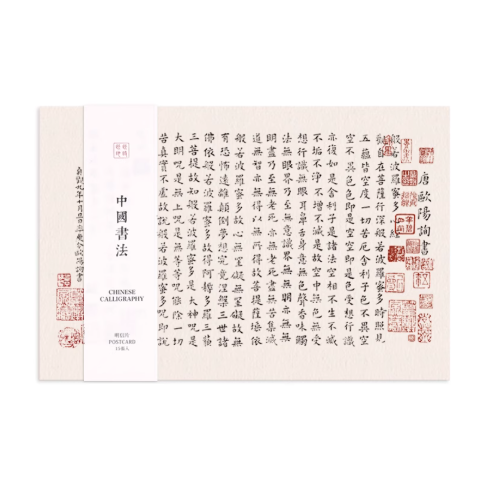 唐歐陽詢書
般若波羅蜜多心經
觀自在菩薩行深般若波羅蜜多時照見
五蘊皆空度一切苦厄舍利子色不異空
空不異色色即是空空即是色受想行識
亦復如是舍利子是諸法空相不生不滅
不垢不淨不增不減是故空中無色無受
想行識無眼耳鼻舌身意無色聲香味觸
法無眼界乃至無意識界無無明亦無無
明盡乃至無老死亦無老死盡無苦集滅
道無智亦無得以無所得故菩提薩埵依
般若波羅蜜多故心無罣礙無罣礙故無
有恐怖遠離顛倒夢想究竟涅槃三世諸
佛依般若波羅蜜多故得阿耨多羅三藐
三菩提故知般若波羅蜜多是大神呪是
大明呪是無上呪是無等等呪能除一切
苦真實不虛故說般若波羅蜜多呪即說
中國書法
CHINESE
CALLIGRAPHY
明信片
POSTCARD
貞觀九年十月歐陽詢書